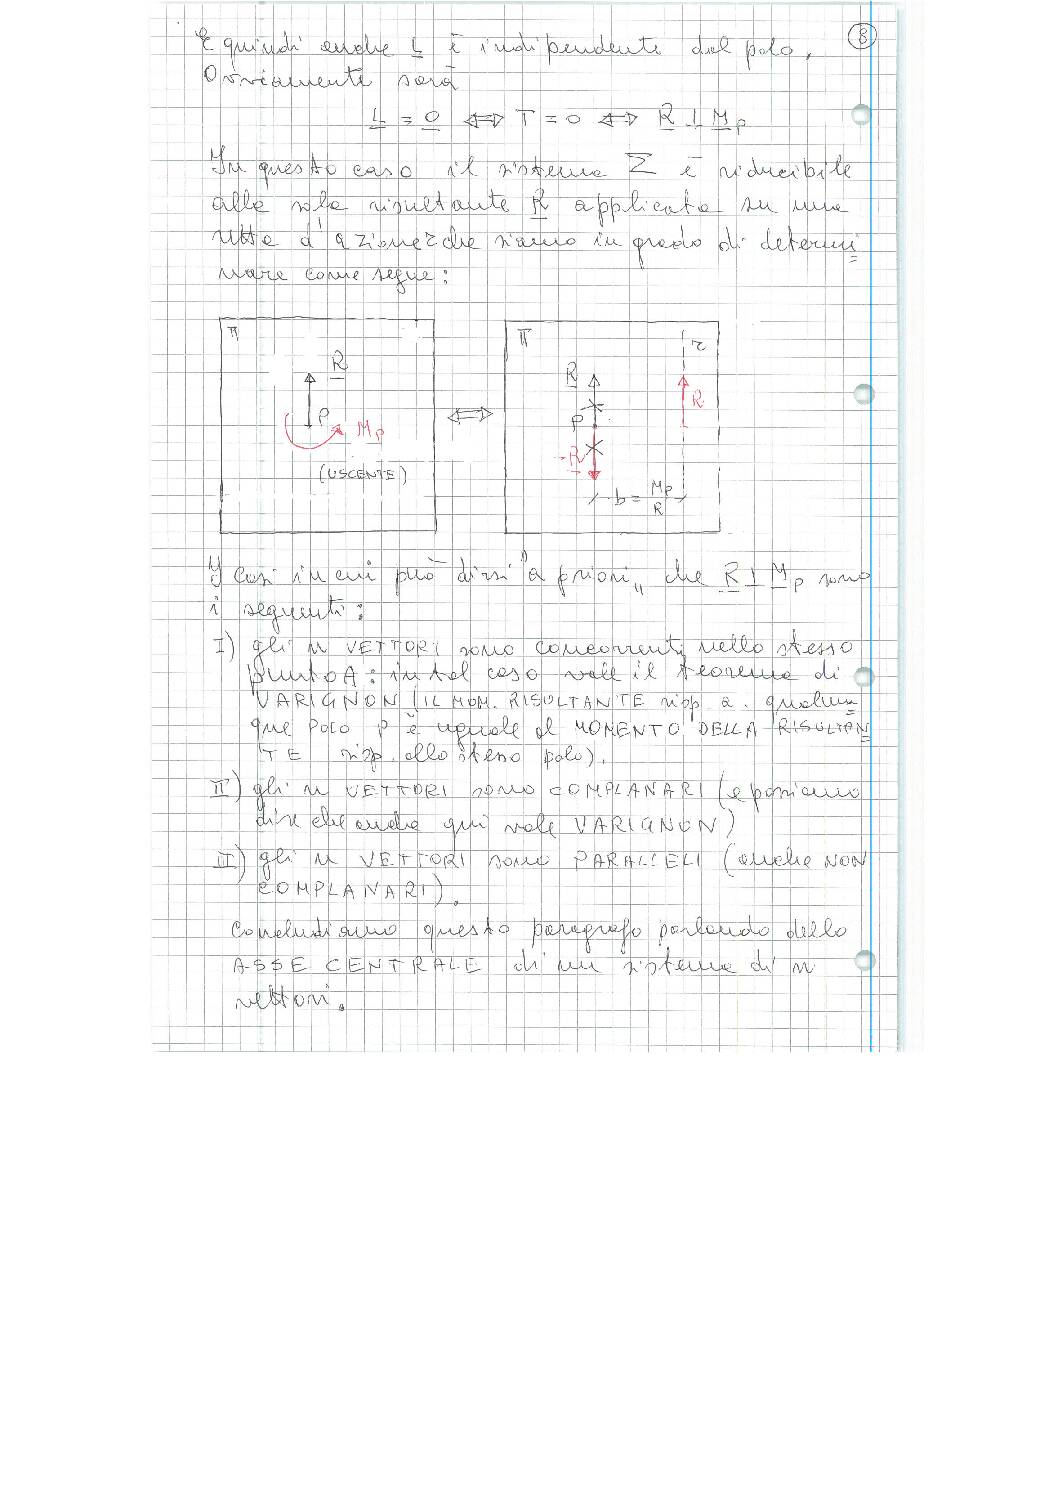 8
E quindi anche L è indipendente dal polo,
Ovviamente sarà
L = 0 ⇔ T = 0 ⇔ R ⊥ M_P
In questo caso il sistema Σ è riducibile
alla sola risultante R applicata su una
retta d'azione r che siamo in grado di determi
nare come segue:
π
R
P
M_P
(USCENTE)
⇔
π
r
R
R
P
-R
b = M_P / R
I casi in cui può dirsi "a priori" che R ⊥ M_P sono
i seguenti:
I) gli n VETTORI sono concorrenti nello stesso
punto A: in tal caso vale il teorema di
VARIGNON (IL MOM. RISULTANTE risp. a. qualun
que POLO P è uguale al MOMENTO DELLA RISULTAN
TE risp. allo stesso polo).
II) gli n VETTORI sono COMPLANARI (e possiamo
dire che anche qui vale VARIGNON)
III) gli n VETTORI sono PARALLELI (anche NON
COMPLANARI).
Concludiamo questo paragrafo parlando dello
ASSE CENTRALE di un sistema di n
vettori.